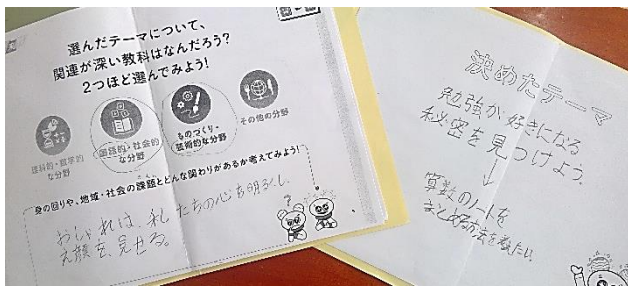 選んだテーマについて、
関連が深い教科はなんだろう？
2つほど選んでみよう！
理科的・数学的
な分野
国語的・社会的
な分野
ものづくり・
芸術的な分野
その他の分野
身の回りや、地域・社会の課題とどんな関わりがあるか考えてみよう！
おしゃれは、私たちの心を明るくし、
笑顔を、見せる。
決めたテーマ
勉強が好きになる
秘密を見つけよう。
↓
算数のノートを
まとめる方法を教えたい。